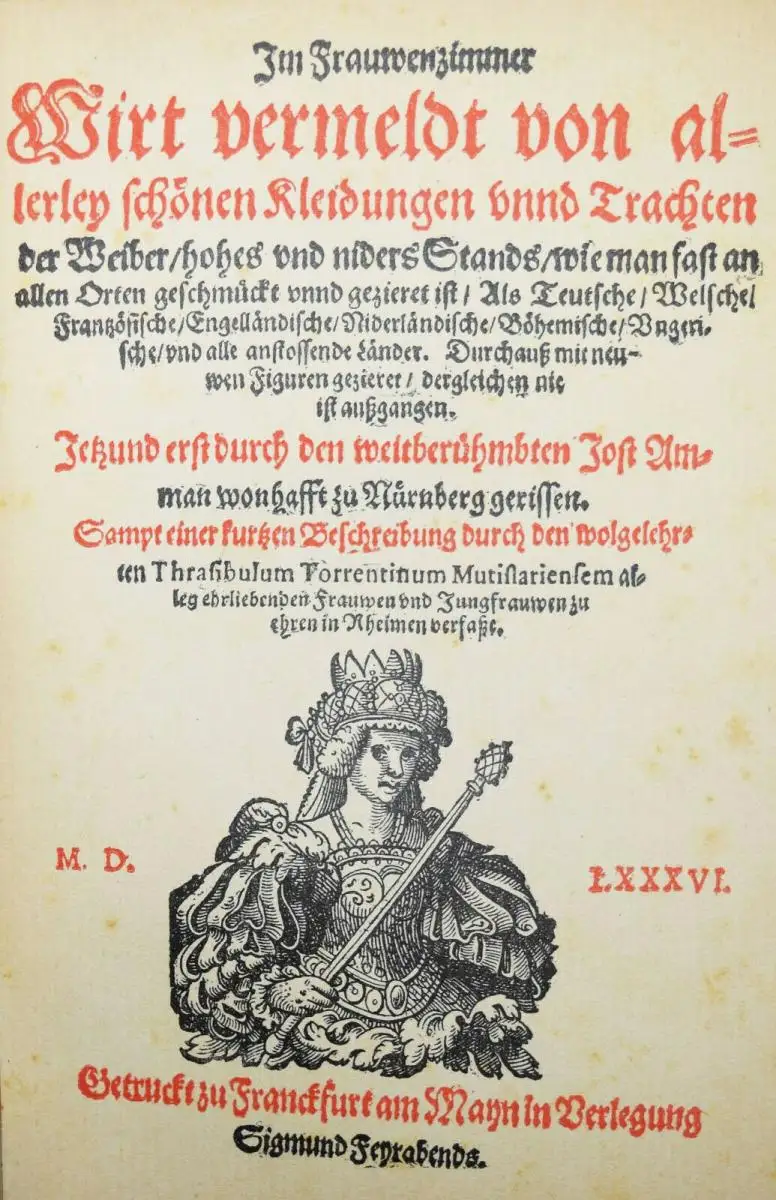 Im Frauwenzimmer
Wirt vermeldt von al-
lerley schönen Kleidungen vnnd Trachten
der Weiber/hohes vnd niders Stands/wie man fast an
allen Orten geschmückt vnnd gezieret ist/ Als Teutsche/ Welsche/
Frantzösische/Engelländische/Niderländische/Böhemische/Vngeri-
sche/vnd alle anstossende Länder. Durchauß mit neu-
wen Figuren gezieret/ dergleichen nie
ist außgangen.
Jetzund erst durch den weitberühmbten Jost Am-
man wonhafft zu Nürnberg gerissen.
Sampt einer kurtzen Beschreibung durch den wolgelehr-
ten Thrasibulum Torrentinum Mutislariensem al-
len ehrliebenden Frauwen vnd Jungfrauwen zu
ehren in Rheimen verfaßt.
M. D. LXXXVI.
Getruckt zu Franckfurt am Mayn in Verlegung
Sigmund Feyrabends.